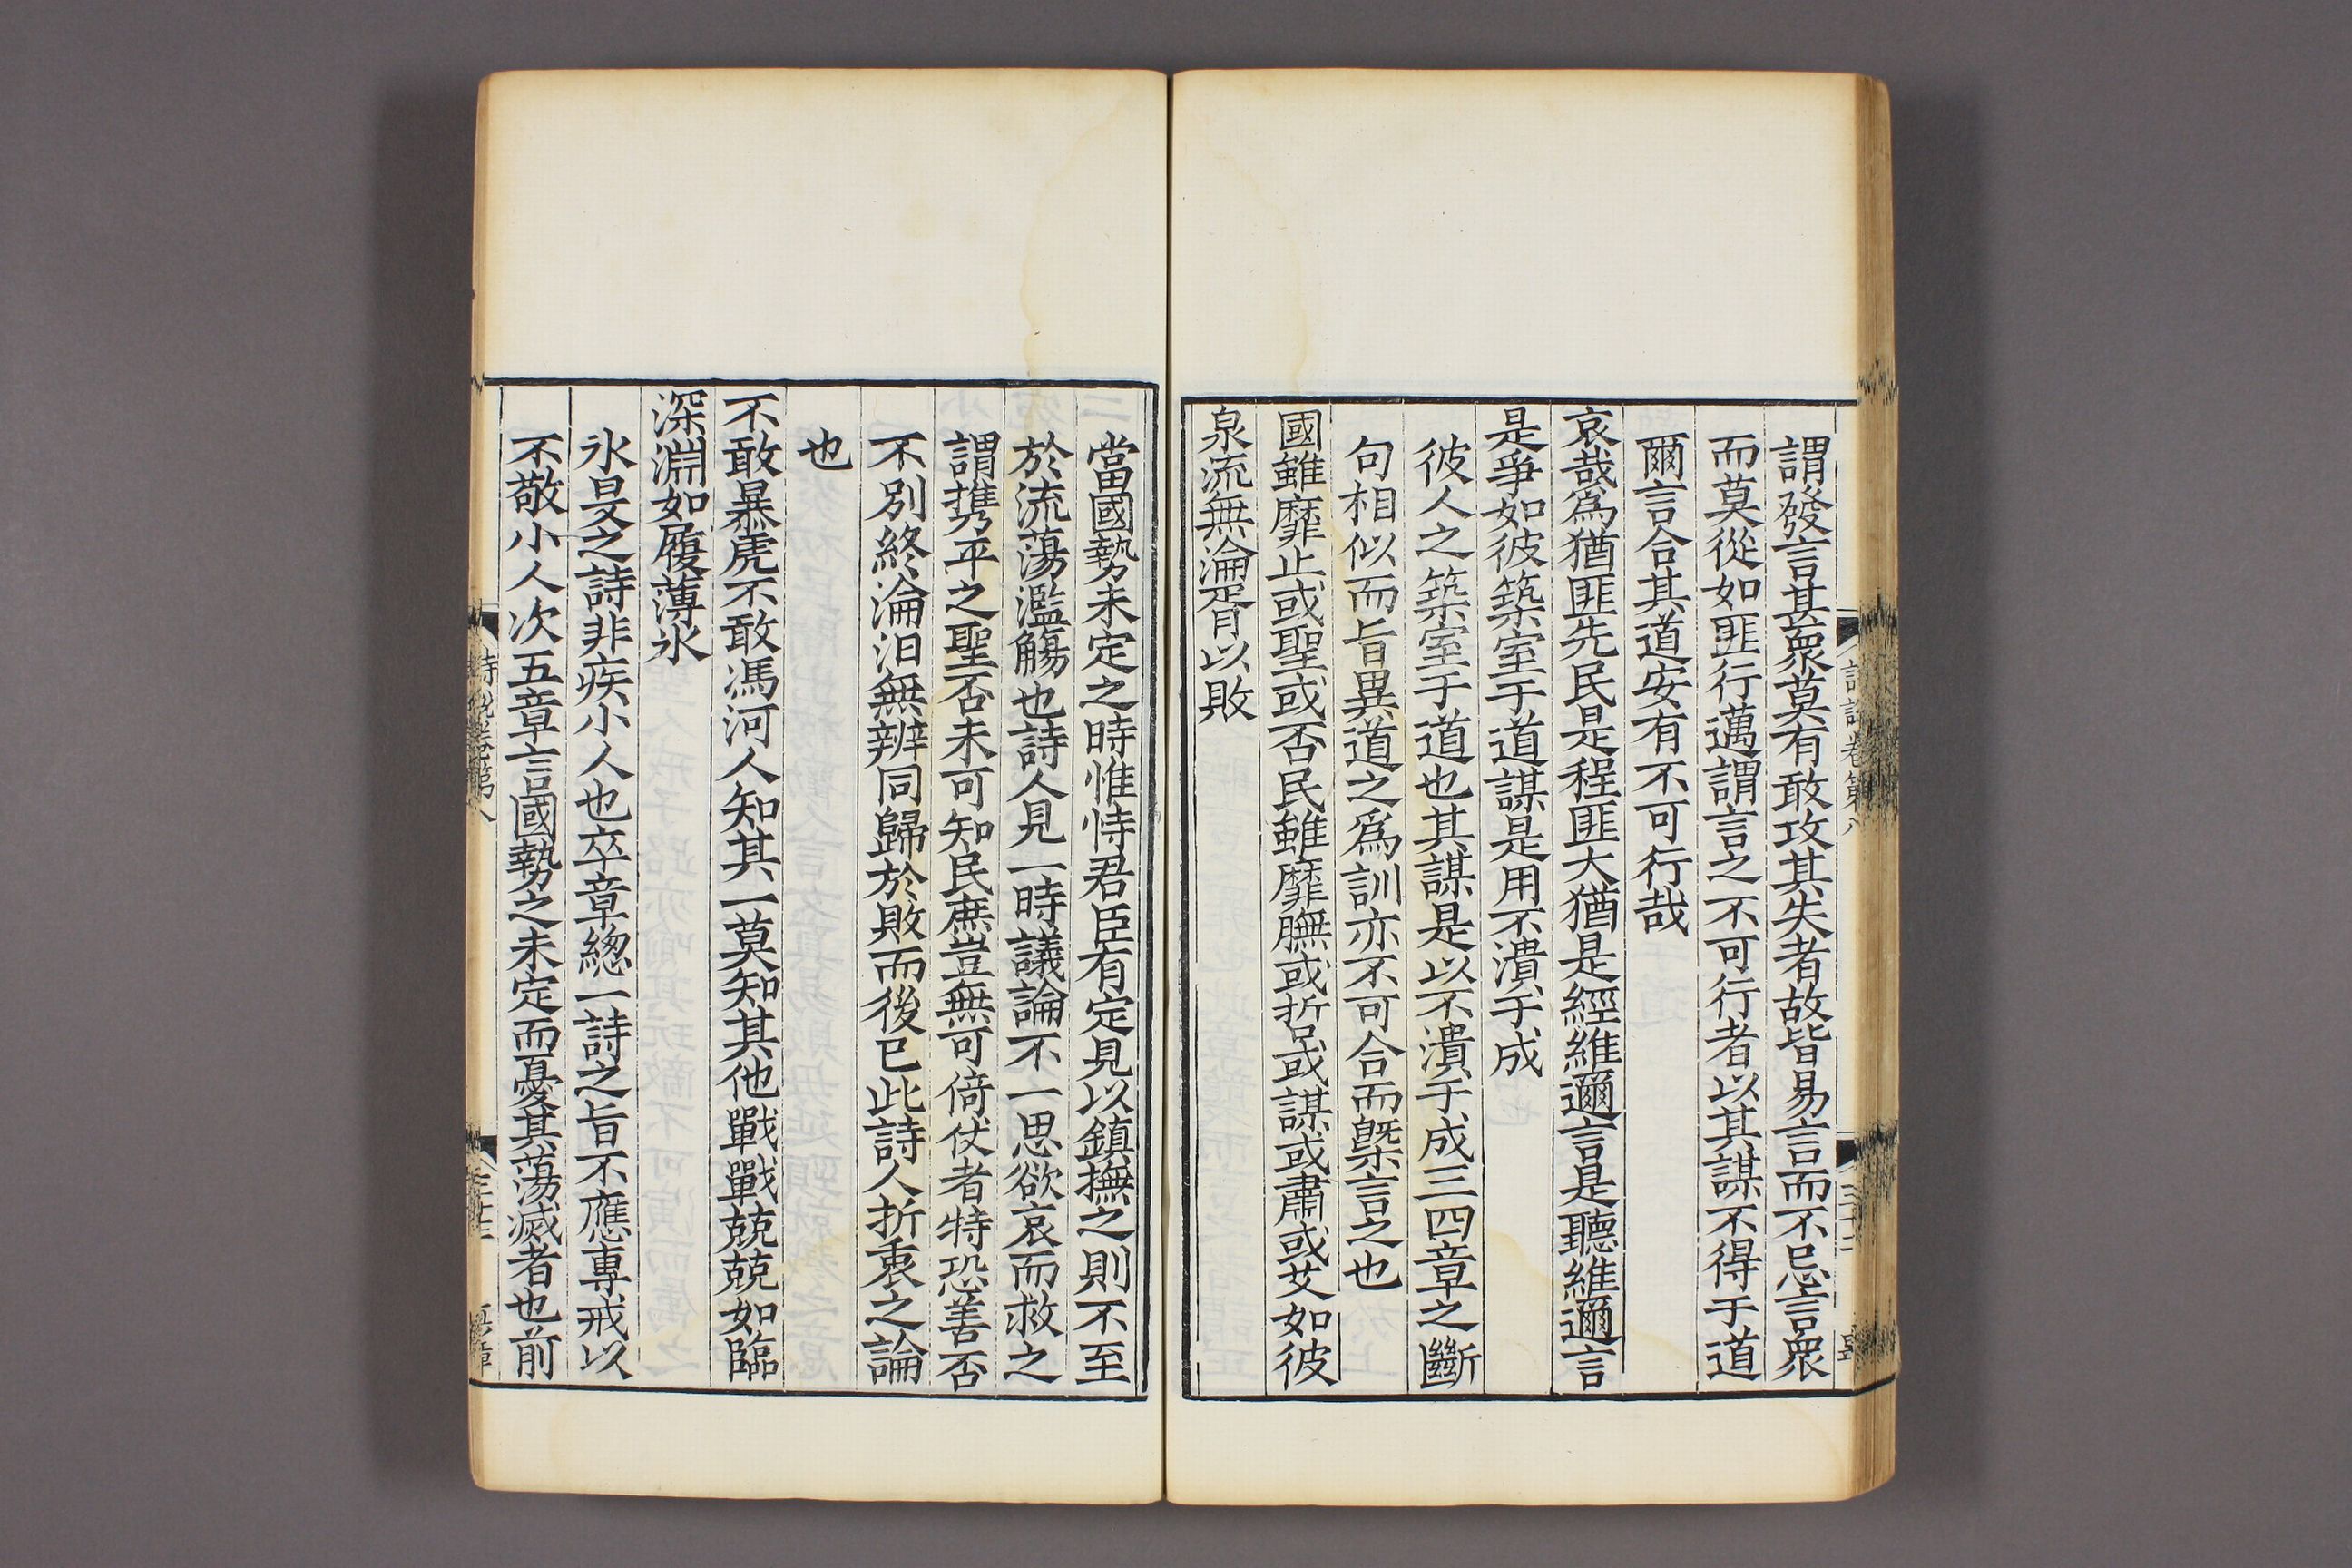 謂發言甚衆莫有敢攻其失者故皆易言而不忌言衆
而莫從如匪行邁謂言之不可行者以其謀不得于道
爾言合其道安有不可行哉
哀哉爲猶匪先民是程匪大猶是經維邇言是聽維邇言
是爭如彼築室于道謀是用不潰于成
彼人之築室于道也其謀是以不潰于成三四章之斷
句相似而旨異道之爲訓亦不可合而槩言之也
國雖靡止或聖或否民雖靡膴或哲或謀或肅或艾如彼
泉流無淪胥以敗
當國勢未定之時惟恃君臣有定見以鎮撫之則不至
於流蕩濫觴也詩人見一時議論不一思欲哀而救之
謂携乎之聖否未可知民庶豈無可倚仗者特恐善否
不別終淪汨無辨同歸於敗而後已此詩人折衷之論
也
不敢暴虎不敢馮河人知其一莫知其他戰戰兢兢如臨
深淵如履薄氷
氷旻之詩非疾小人也卒章緫一詩之旨不應專戒以
不敬小人次五章言國勢之未定而憂其蕩滅者也前
詩說卷第八